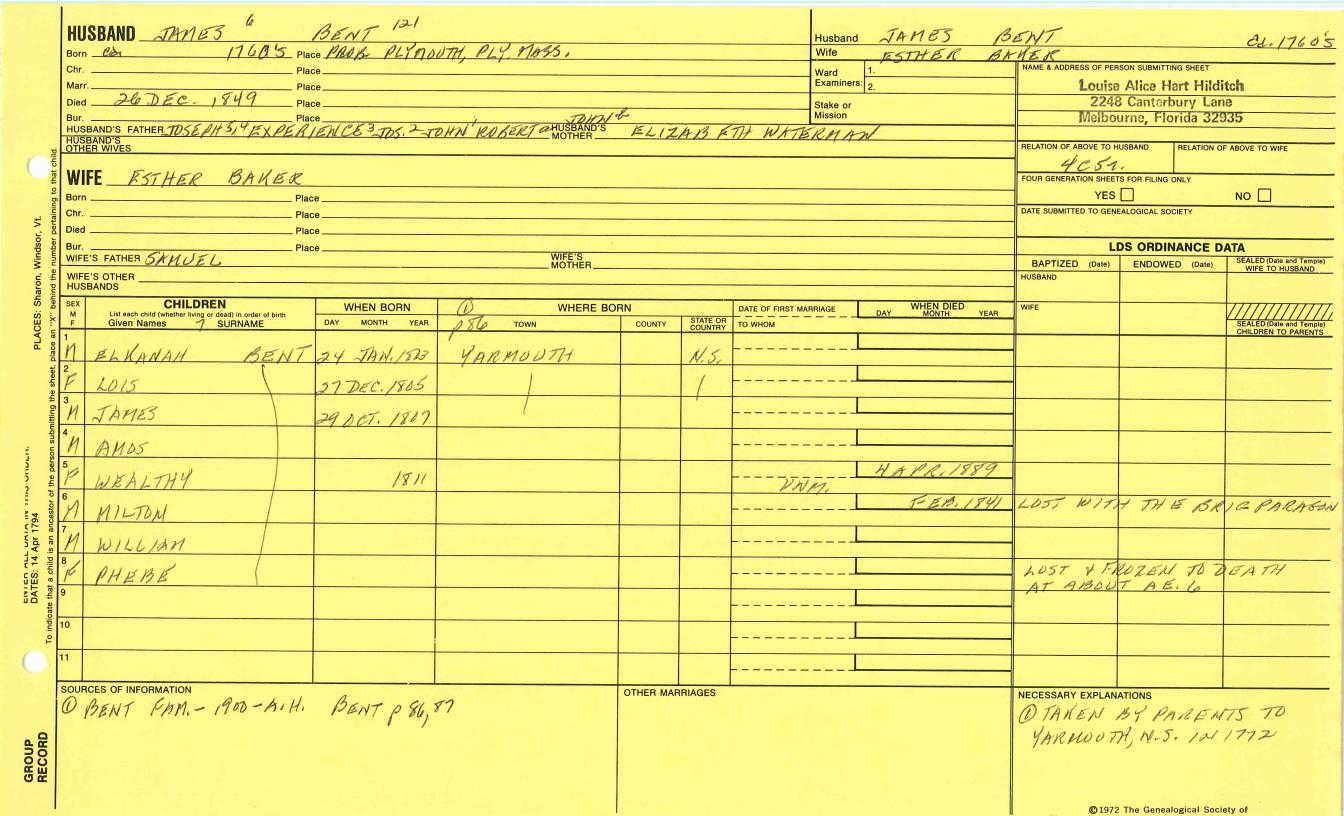 HUSBAND JAMES 6 BENT 121
Born ca. 1760'S Place PROB. PLYMOUTH, PLY. MASS.
Chr. Place
Marr. Place
Died 26 DEC. 1849 Place
Bur. Place
HUSBAND'S FATHER JOSEPH 5,4 EXPERIENCE 3 JOS. 2 JOHN ROBERT JOHN HUSBAND'S MOTHER ELIZABETH WATERMAN
HUSBAND'S OTHER WIVES
Husband JAMES BENT Ca. 1760'S
Wife ESTHER BAKER
Ward Examiners: 1.
2.
Stake or Mission
NAME & ADDRESS OF PERSON SUBMITTING SHEET
Louise Alice Hart Hilditch
2248 Canterbury Lane
Melbourne, Florida 32935
RELATION OF ABOVE TO HUSBAND RELATION OF ABOVE TO WIFE
4C5r.
FOUR GENERATION SHEETS FOR FILING ONLY
YES NO
DATE SUBMITTED TO GENEALOGICAL SOCIETY
WIFE ESTHER BAKER
Born Place
Chr. Place
Died Place
Bur. Place
WIFE'S FATHER SAMUEL WIFE'S MOTHER
WIFE'S OTHER HUSBANDS
LDS ORDINANCE DATA
BAPTIZED (Date) ENDOWED (Date) SEALED (Date and Temple) WIFE TO HUSBAND
HUSBAND
WIFE
SEALED (Date and Temple) CHILDREN TO PARENTS
SEX M F
CHILDREN
List each child (whether living or dead) in order of birth
Given Names 7 SURNAME
WHEN BORN
DAY MONTH YEAR
① p86 WHERE BORN
TOWN COUNTY STATE OR COUNTRY
DATE OF FIRST MARRIAGE
TO WHOM
WHEN DIED
DAY MONTH YEAR
1 M ELKANAH BENT 24 JAN. 1803 YARMOUTH N.S.
2 F LOIS 27 DEC. 1805
3 M JAMES 29 OCT. 1807
4 M AMOS
5 F WEALTHY 1811 UNM. 4 APR. 1889
6 M MILTON FEB. 1841 LOST WITH THE BRIG PARAGON
7 M WILLIAM
8 F PHEBE LOST & FROZEN TO DEATH
AT ABOUT AE. 6
9
10
11
SOURCES OF INFORMATION
① BENT FAM. - 1900 - A.H. BENT p 86,87
OTHER MARRIAGES
NECESSARY EXPLANATIONS
① TAKEN BY PARENTS TO
YARMOUTH, N.S. IN 1772
©1972 The Genealogical Society of
PLACES: Sharon, Windsor, Vt.
ENTER ALL DATA IN THIS ORDER:
DATES: 14 Apr 1794
To indicate that a child is an ancestor of the person submitting the sheet, place an "X" behind the number pertaining to that child.
GROUP
RECORD